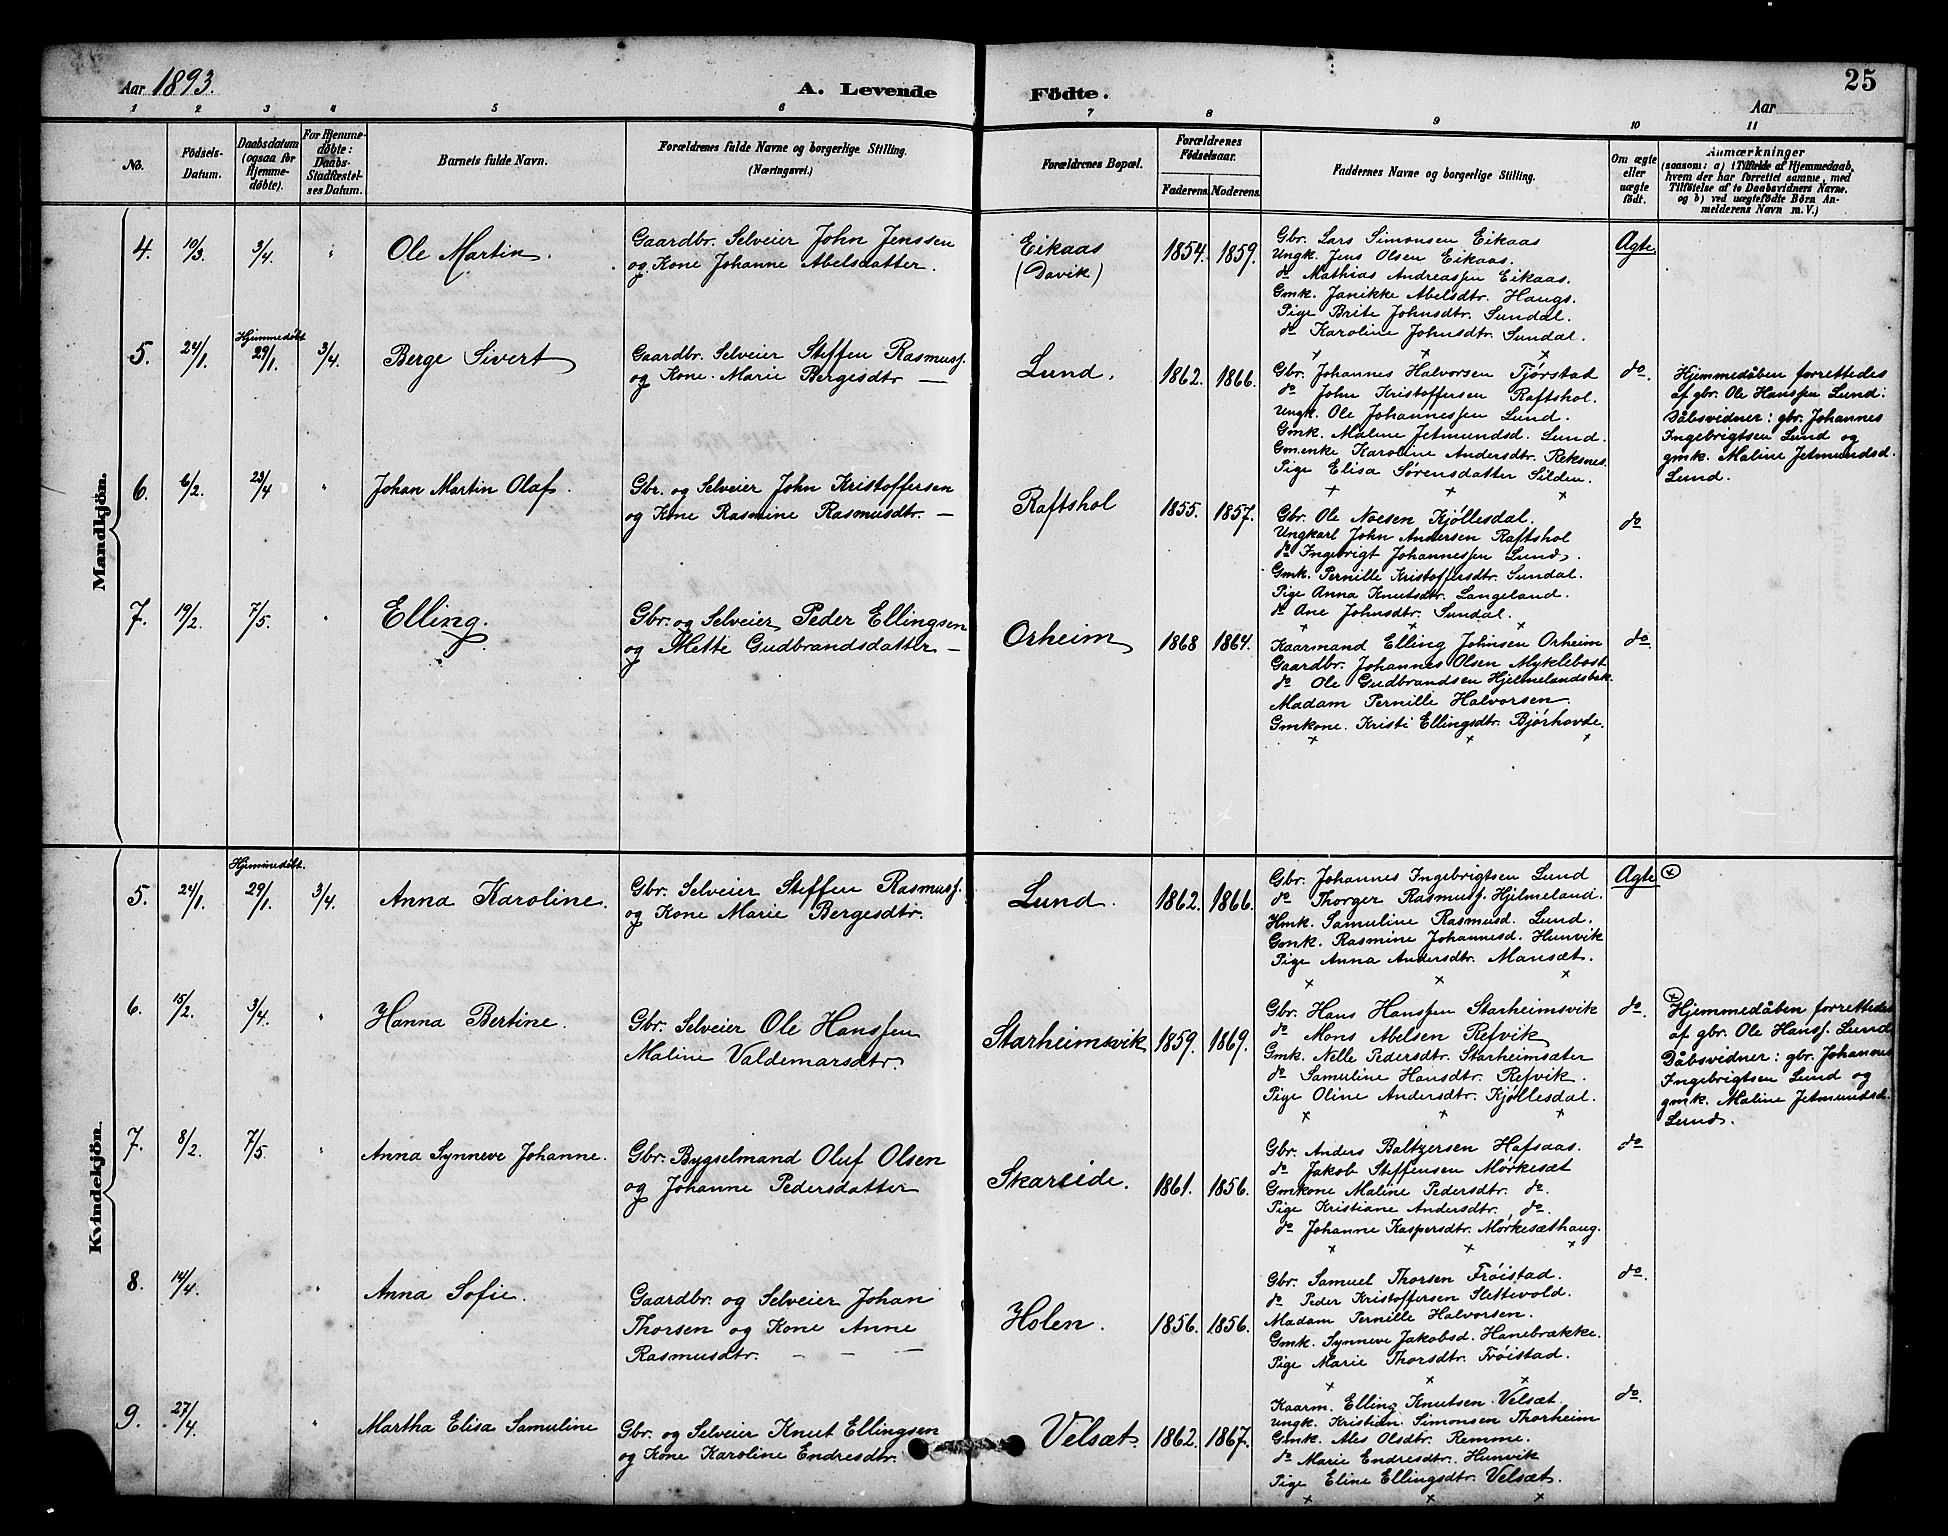 Aar 1893.
A. Levende Födte.
25
Aar
1 2 3 4 5 6 7 8 9 10 11
No.
Födsels-
Datum.
Daabsdatum
(ogsaa for
Hjemme-
döbte).
For Hjemme-
döbte:
Daabs-
Stadfæstel-
ses Datum.
Barnets fulde Navn.
Forældrenes fulde Navne og borgerlige Stilling.
(Næringsvei.)
Forældrenes Bopæl.
Forældrenes
Födselsaar.
Faderens. Moderens.
Faddernes Navne og borgerlige Stilling.
Om ægte
eller
uægte
födt.
Anmærkninger
(saasom: a) i Tilfælde af Hjemmedaab,
hvem der har forrettet samme, med
Tilföielse af to Daabsvidners Navne.
og b) ved uægtefödte Börn An-
melderens Navn m. V.)
Mandkjön.
4. 10/3 3/4 " Ole Martin.
Gaardbr. Selveier John Jenssen
og Kone Johanne Abelsdatter.
Eikaas
(Davik)
1854. 1859.
Gbr. Lars Simonsen Eikaas
Ungk. Jens Olsen Eikaas.
do Mathias Andreassen Eikaas.
Gmk. Janikke Abelsdtr. Haugs.
Pige Brite Johnsdtr. Sundal.
do Karoline Johnsdtr. Sundal.
x x x
Ægte
5. 24/1. Hjemmedøbt 29/1. 3/4. Berge Sivert
Gaardbr. Selveier Steffen Rasmuss.
og Kone Marie Bergesdtr —
Lund.
1862. 1866.
Gbr. Johannes Halvorsen Tjørstad
do John Kristoffersen Raftshol.
Ungk. Ole Johannessen Lund.
Gmk. Maline Jetmundsd. Lund.
Gm.enke Karoline Andersdtr. Reksnes
Pige Elisa Sørensdatter Silden.
x x x
do.
Hjemmedåben forrettedes
af gbr. Ole Hanssen Lund:
Dåbsvidner: gbr. Johannes
Ingebrigtsen Lund og
gmk. Maline Jetmundsd.
Lund.
6. 6/2. 23/4 " Johan Martin Olaf.
Gbr. og Selveier John Kristoffersen
og Kone Rasmine Rasmusdtr. —
Raftshol
1855. 1857.
Gbr. Ole Noesen Kjøllesdal.
Ungkarl John Andersen Raftshol
do Ingebrigt Johannessen Lund.
Gmk. Pernille Kristoffersdtr. Sundal.
Pige Anna Knutsdtr. Langeland.
do Ane Johnsdtr. Sundal.
x x x
do
7. 19/2. 7/5. " Elling.
Gbr. og Selveier Peder Ellingsen
og Mette Gudbrandsdatter —
Orheim
1868 1864.
Kaarmand Elling Johnsen Orheim
Gaardbr. Johannes Olsen Myklebost
do Ole Gudbrandsen Hjelmelandsbak.
Madam Pernille Halvorsen.
Gmkone. Kristi Ellingsdtr. Bjørhovde.
x x x
do.
Kvindekjön.
5. 24/1. Hjemmedøbt. 29/1. 3/4. Anna Karoline.
Gbr. Selveier Steffen Rasmuss.
og Kone Marie Bergesdtr.
Lund.
1862. 1866.
Gbr. Johannes Ingebrigtsen Lund
do Thorger Rasmuss. Hjelmeland.
Hmk. Samuline Rasmusd. Lund.
Gmk. Rasmine Johannesd. Hunvik
Pige Anna Andersdtr. Mansæt.
x x x
Ægte x
6. 15/2. 3/4. " Hanna Bertine.
Gbr. Selveier Ole Hanssen
Maline Valdemarsdtr.
Starheimsvik
1859. 1869.
Gbr. Hans Hanssen Starheimsvik
do Mons Abelsen Refvik
Gmk. Nelle Pedersdtr. Starheimsæter
do Samuline Hansdtr. Refvik.
Pige Oline Andersdtr. Kjøllesdal.
x x x
do.
x Hjemmedåben forrettedes
af gbr. Ole Hanss. Lund
Dåbsvidner: gbr. Johannes
Ingebrigtsen Lund og
gmk. Maline Jetmundsd.
Lund.
7. 8/2. 7/5. " Anna Synneve Johanne.
Gbr. Bygselmand Oluf Olsen
og Johanne Pedersdatter
Skareide.
1861. 1856.
Gbr. Anders Baltzersen Hafsaas.
do Jakob Steffensen Mørkesæt
Gmkone Maline Pedersdtr. do.
Pige Kristiane Andersdtr. do.
do Johanne Kaspersdtr. Mørkesæthaug.
x x x
do
8. 14/4. " Anna Sofie.
Gaardbr. og Selveier Johan
Thorsen og Kone Anne
Rasmusdtr. — — —
Holen.
1856. 1856.
Gbr. Samuel Thorsen Frøistad.
do Peder Kristoffersen Slettevold.
Madam Pernille Halvorsen.
Gmk. Synneve Jakobsd. Hanebrække.
Pige Marie Thorsdtr. Frøistad.
x x x
do.
9. 27/4. " Martha Elisa Samuline
Gbr. og Selveier Knut Ellingsen
og Kone Karoline Endresdtr.
Velsæt.
1862. 1867.
Kaarm. Elling Knutsen Velsæt.
Ungk. Kristian Simonsen Thorheim
Gmk. Ales Olsdtr. Remme.
do Marie Endresdtr. Hunvik
Pige Eline Ellingsdtr. Velsæt.
x x x
do.